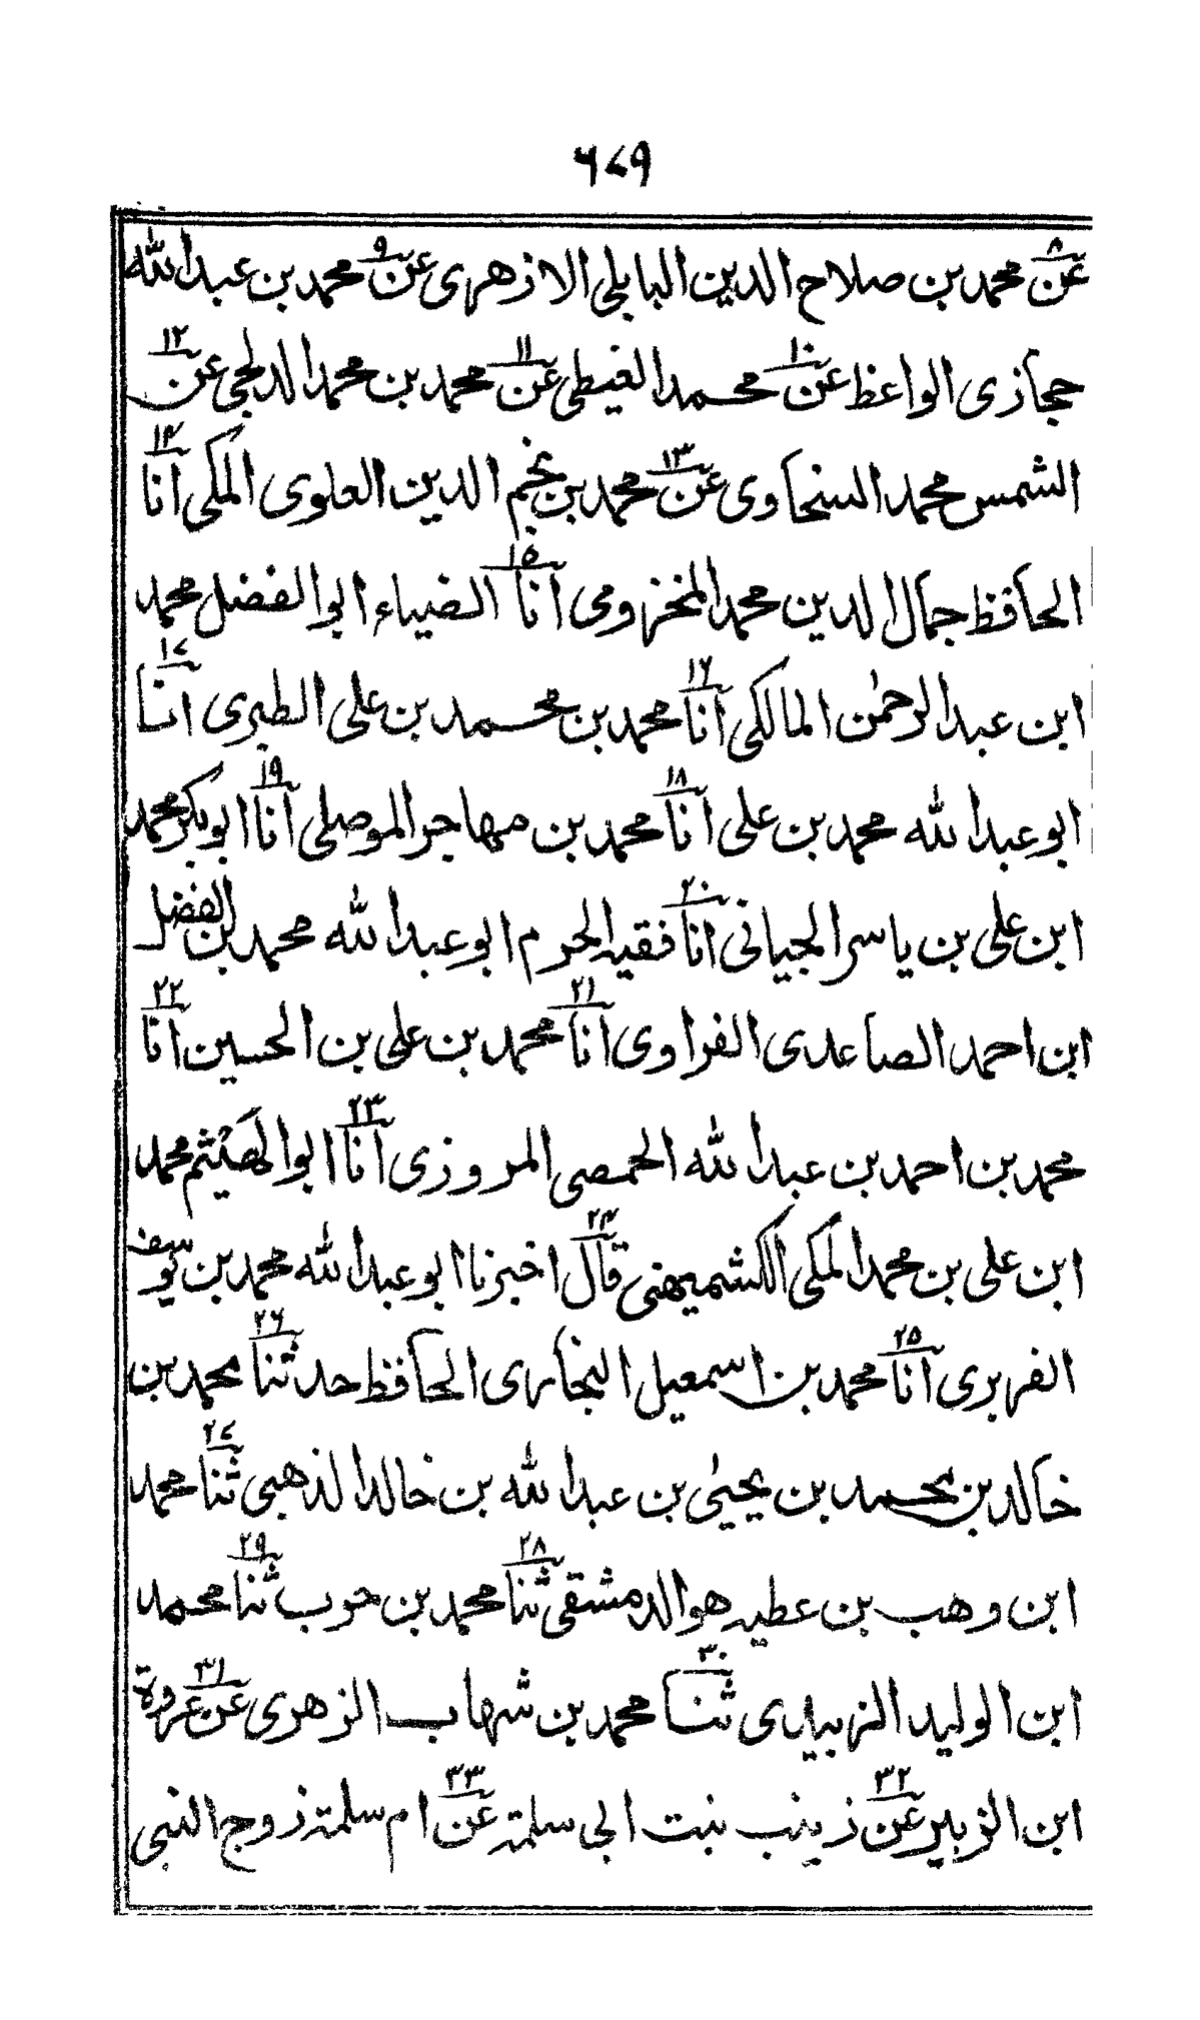 ۶۷۹
عن۸ محمد بن صلاح الدین البابلی الازهری عن۹ محمد بن عبد الله
حجازی الواعظ عن۱۰ محمد الغیطی عن۱۱ محمد بن محمد الدلجی عن۱۲
الشمس محمد السنحاوی عن۱۳ محمد بن نجم الدین العلوی المکی انا۱۴
الحافظ جمال الدین محمد المخزومی انا۱۵ الضیاء ابو الفضل محمد
ابن عبد الرحمٰن المالکی انا۱۶ محمد بن محمد بن علی الطبری انا۱۷
ابو عبد الله محمد بن علی انا۱۸ محمد بن مهاجر الموصلی انا۱۹ ابو بکر محمد
ابن علی بن یاسر الجیانی انا۲۰ فقیه الحرم ابو عبد الله محمد بن الفضل
ابن احمد الصاعدی الفراوی انا۲۱ محمد بن علی بن الحسین انا۲۲
محمد بن احمد بن عبد الله الحمصی المروزی انا۲۳ ابو الهَیْثم محمد
ابن علی بن محمد المکی الکشمیهنی قال۲۴ اخبرنا ابو عبد الله محمد بن یوسف
الفربری انا۲۵ محمد بن اسمعیل البخاری الحافظ حدثنا۲۶ محمد بن
خالد بن محمد بن یحییٰ بن عبد الله بن خالد الذهبی ثنا۲۷ محمد
ابن وهب بن عطیه هو الدمشقی ثنا۲۸ محمد بن حرب ثنا۲۹ محمد
ابن الولید الزبیدی ثنا۳۰ محمد بن شهاب الزهری عن۳۱ عروة
ابن الزبیر عن۳۲ زینب بنت ابی سلمة عن۳۳ ام سلمة زوج النبی